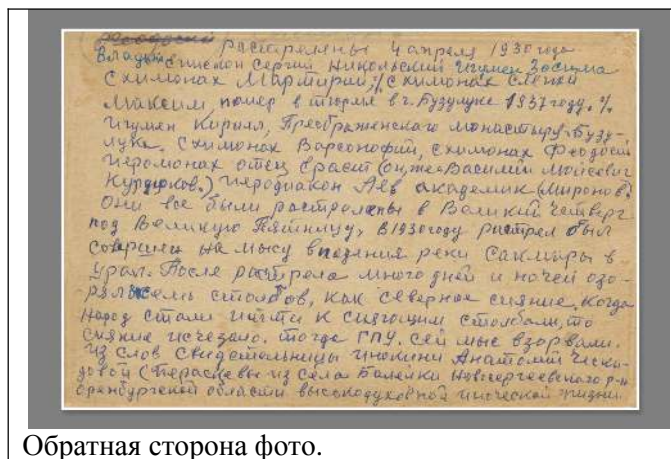 расстреляны 4 апреля 1930 года
Владыка Сергий Никольский Игумен Зосима
Схимонах Мартирий; % схимонах слепки
Максим помер в тюрме в г. Бузулуке 1937 году. %
Игумен Кирилл, Преображенского монастыру г. Бузу-
лука. Схимонах Варсонофий, схимонах Феодосий
иеромонах отец Ераст (он, же Василий Мойсевич
Курдюков.) Иеродиакон Лев академик (Миронов).
Они все были растрелены в Валикий четверг
под Великую Пятницу, в 1930 году растрел был
совршен на мысу впадения реки Сакмары в
Урал. После растрела много дней и ночей озо-
рялись семь столбов, как северное сияние, когда
народ стали итти к сияющим столбам, то
сияние исчезало. тогда ГПУ. сей мыс взорвали.
Из слов свидетельницы инокини Анатолий Чески-
довой (Параскевы из села Балейки Новсергеевского р-н
оренбургской области высокодуховной инческой жизни
Обратная сторона фото.